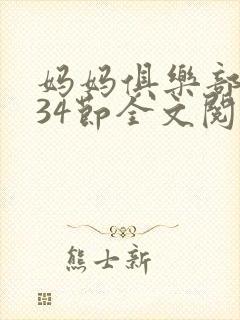 妈妈俱樂部
34節全文閱
熊士新